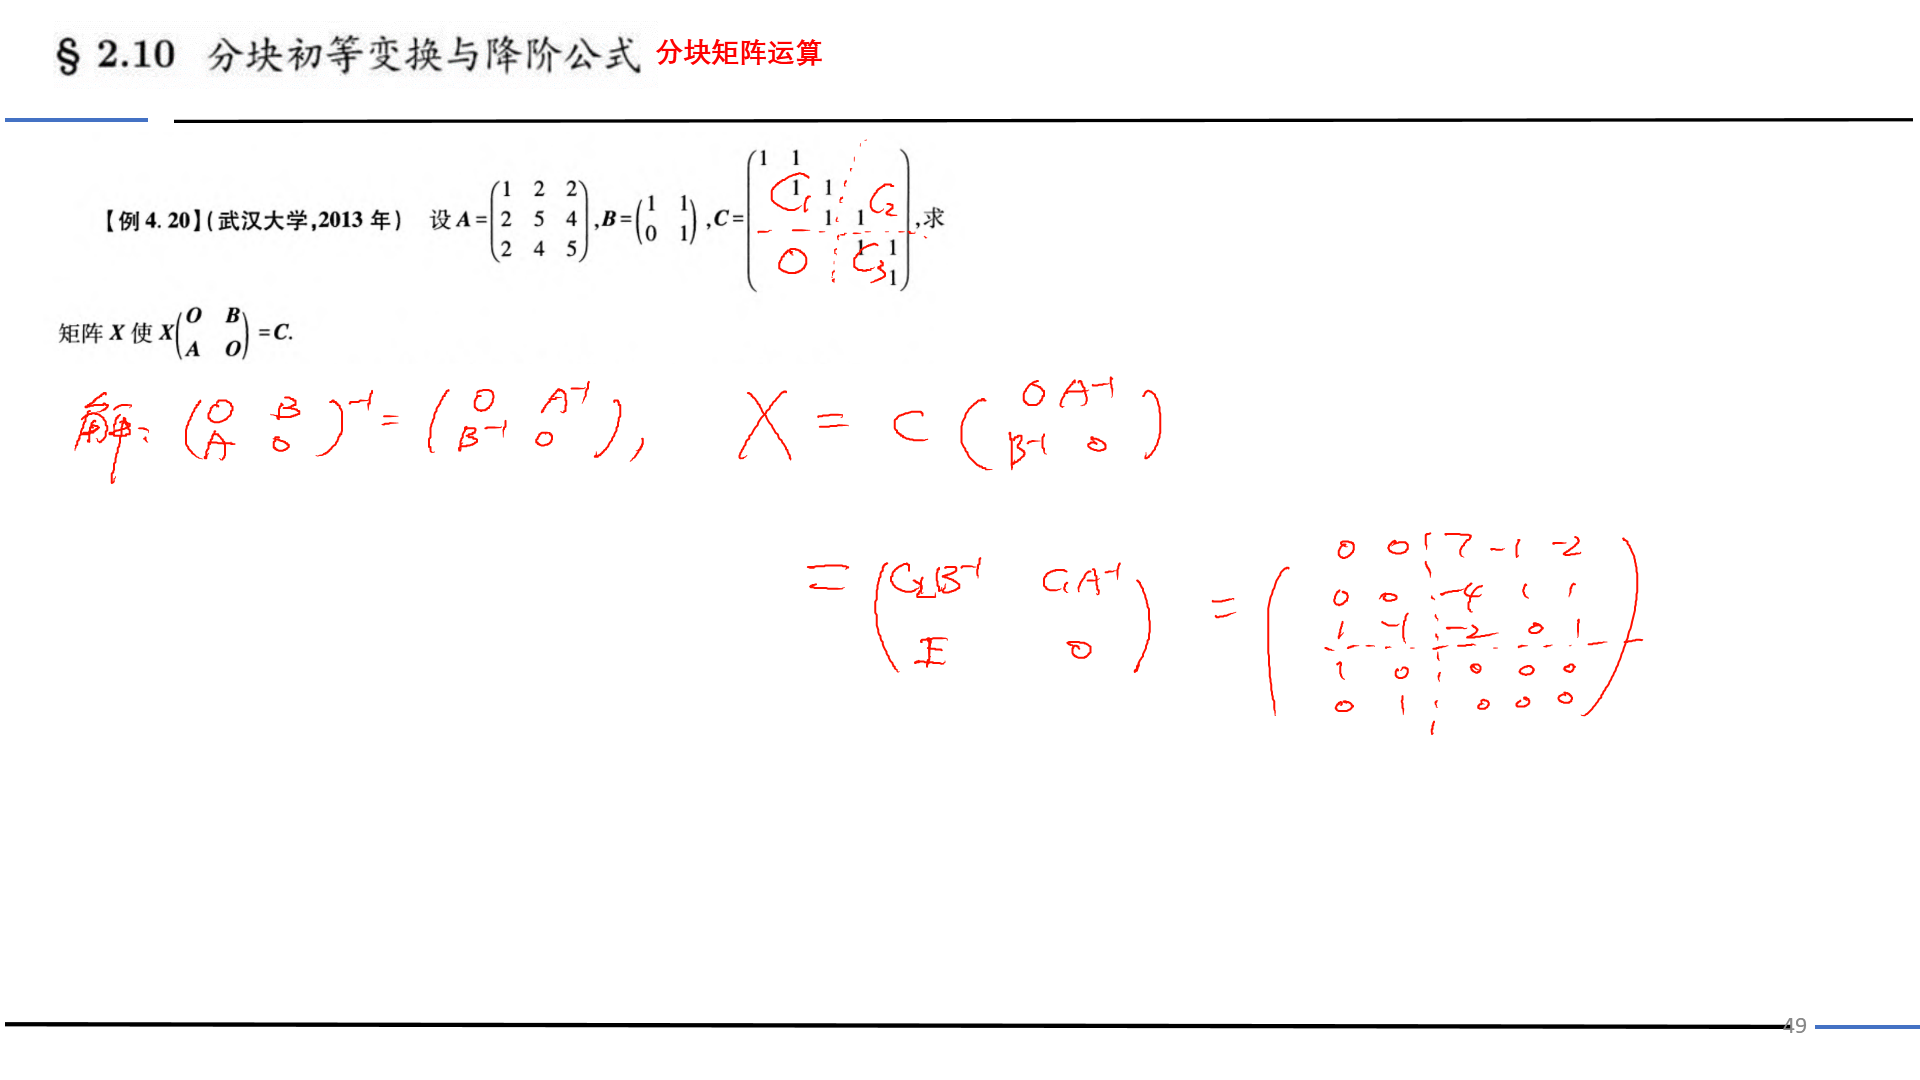 § 2.10 分块初等变换与降阶公式 分块矩阵运算
【例 4.20】(武汉大学,2013 年) 设 A=(1 2 2
2 5 4
2 4 5),B=(1 1
0 1),C=(1 1
1 1
1 1
1 1
1),求
C₁ C₂
O C₃
矩阵 X 使 X(O B
A O)=C.
解: (O B
A O)⁻¹=(O A⁻¹
B⁻¹ O), X = C(O A⁻¹
B⁻¹ O)
=(C₂B⁻¹ C₁A⁻¹
E O)
=(0 0 7 -1 -2
0 0 -4 1 1
1 -1 -2 0 1
1 0 0 0 0
0 1 0 0 0)
49